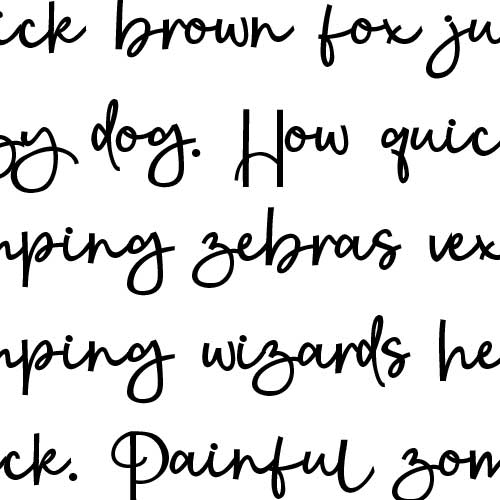 ick brown fox ju
zy dog. How quic
mping zebras vex
mping wizards he
ick. Painful zom